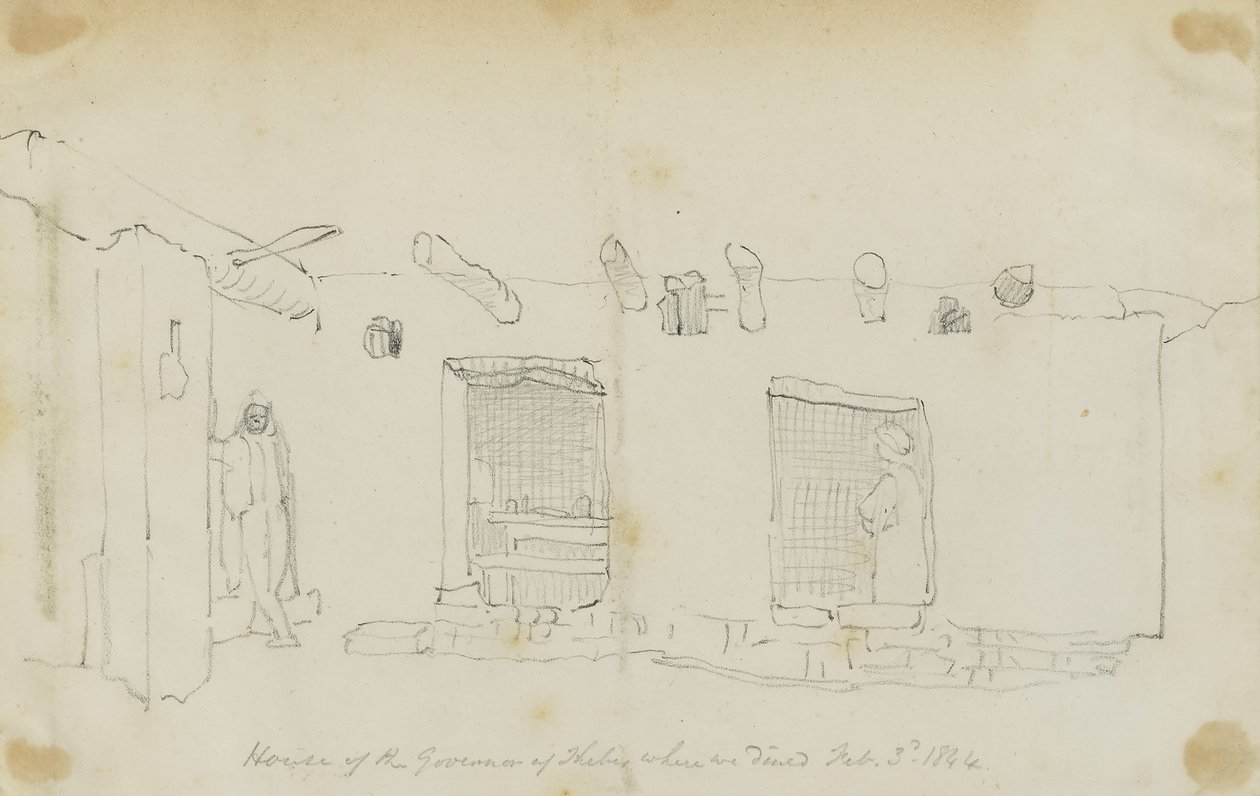 House of the Governor of Thebes where we dined Feb. 3d. 1844.